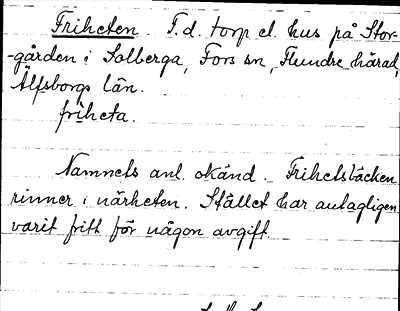 Friheten. T.d. torp el. hus på Stor-
-gården i Solberga, Fors sn, Flundre härad,
Älfsborgs län.
friheta.
Namnets anl. okänd. Frihetsbäcken
rinner i närheten. Stället har antagligen
varit fritt för någon avgift